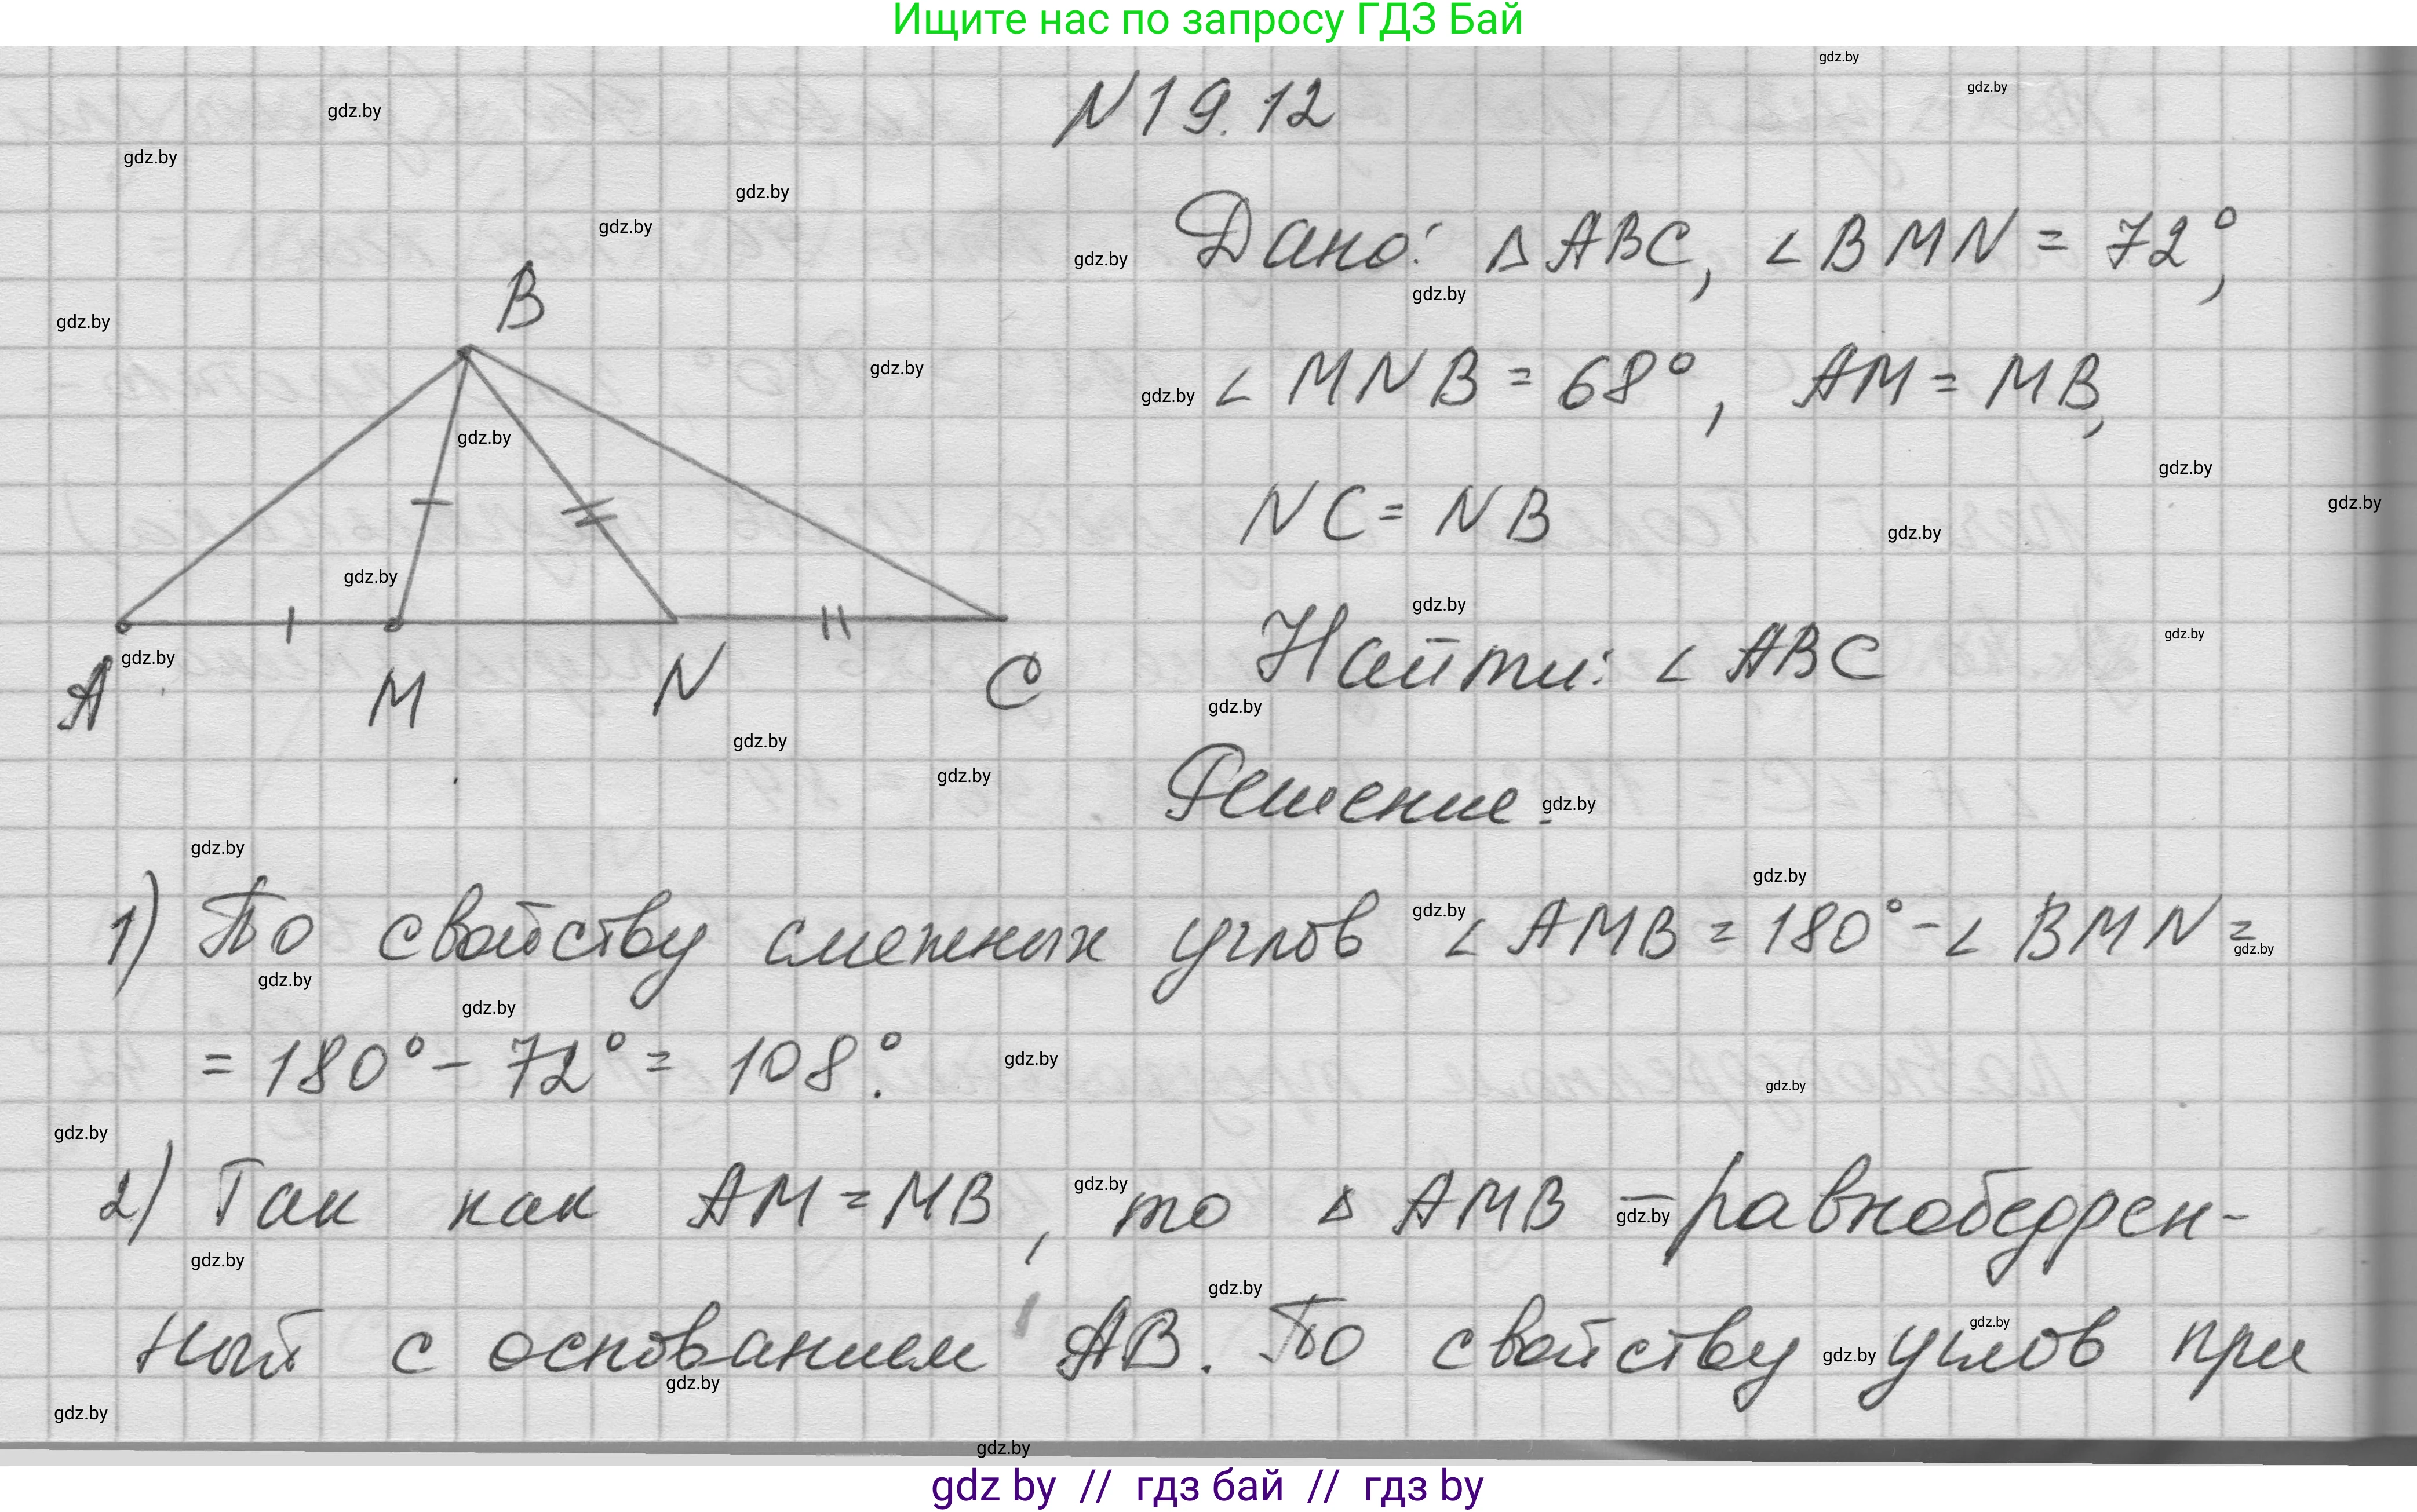 Ищите нас по запросу ГДЗ Бай
N 19.12
Дано: Δ ABC, ∠ BMN = 72°,
∠ MNB = 68°, AM = MB,
NC = NB
Найти: ∠ ABC
Решение.
B
A M N C
1) По свойству смежных углов ∠ AMB = 180° - ∠ BMN =
= 180° - 72° = 108°.
2) Так как AM = MB, то Δ AMB – равнобедрен-
ный с основанием AB. По свойству углов при
gdz by // гдз бай // гдз by
gdz.by